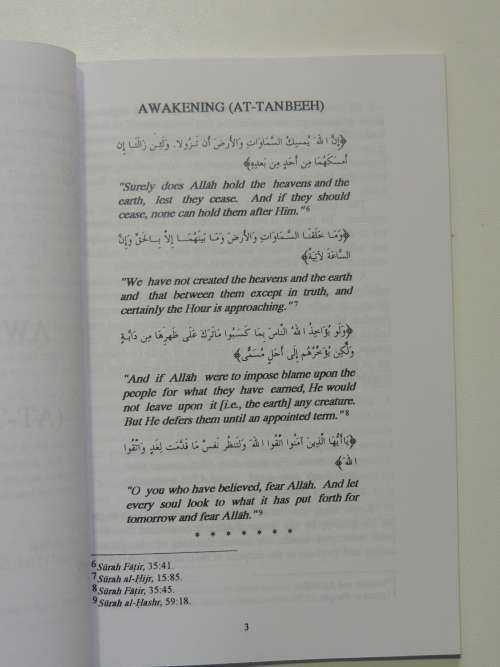 AWAKENING (AT-TANBEEH)
﴿إِنَّ اللهَ يُمسِكُ السَّمَاوَاتِ وَالأَرضَ أَن تَزُولا. وَلَئِن زَالَتَا إِن
أَمسَكَهُمَا مِن أَحَدٍ مِن بَعدِهِ﴾
"Surely does Allāh hold the heavens and the
earth, lest they cease. And if they should
cease, none can hold them after Him."6
﴿وَمَا خَلَقنَا السَّمَاوَاتِ وَالأَرضَ وَمَا بَينَهُمَـا إِلاَّ بِـالحَقِّ وَإِنَّ
السَّاعَةَ لآتِيَةٌ﴾
"We have not created the heavens and the earth
and that between them except in truth, and
certainly the Hour is approaching."7
﴿وَلَو يُؤَاخِذُ اللهُ النَّاسَ بِمَا كَسَبُوا مَاتَرَكَ عَلَى ظَهرِهَا مِن دَابَّةٍ
وَلَكِن يُؤَخِّرُهُم إِلَى أَجَلٍ مُسَمًّى﴾
"And if Allāh were to impose blame upon the
people for what they have earned, He would
not leave upon it [i.e., the earth] any creature.
But He defers them until an appointed term."8
﴿يَاأَيُّهَا الَّذِينَ آمَنُوا اتَّقُوا اللهَ وَلتَنظُر نَفسٌ مَا قَدَّمَت لِغَدٍ وَاتَّقُوا
اللهَ﴾
"O you who have believed, fear Allāh. And let
every soul look to what it has put forth for
tomorrow and fear Allāh."9
* * * * * * *
6 Sūrah Fāṭir, 35:41.
7 Sūrah al-Ḥijr, 15:85.
8 Sūrah Fāṭir, 35:45.
9 Sūrah al-Ḥashr, 59:18.
3